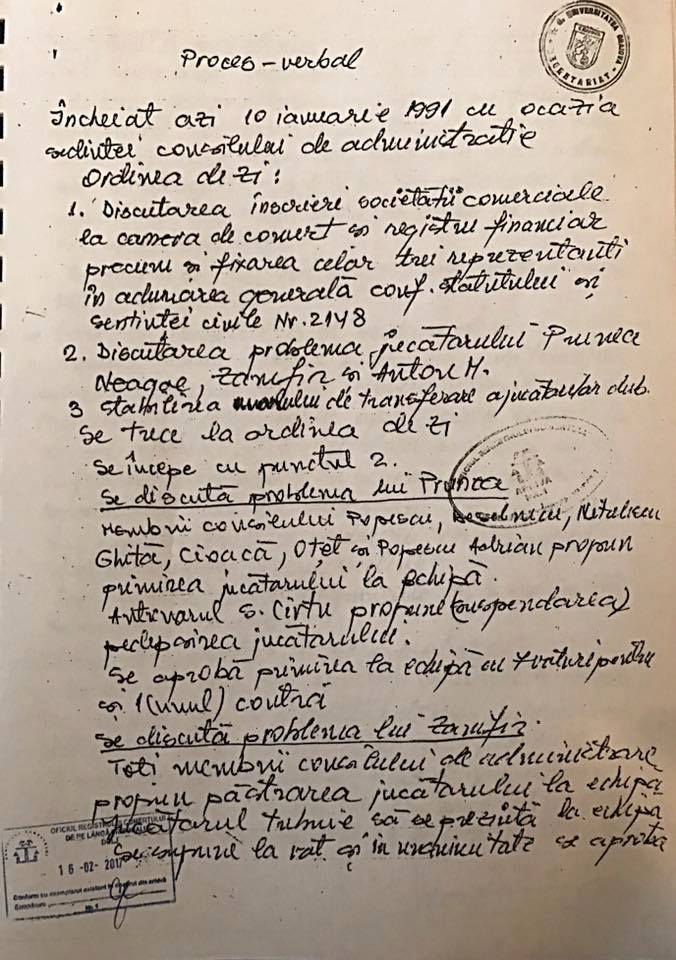 UNIVERSITATEA CRAIOVA
SECRETARIAT
Proces-verbal
Încheiat azi 10 ianuarie 1991 cu ocazia
sedintei consiliului de administratie
Ordinea de zi:
1. Discutarea înscrieri societatii comerciale
la camera de comert si registru financiar
precum si fixarea celor trei reprezentanti
în adunarea generală conf. statutului si
sentintei civile Nr. 2148
2. Discutarea problema jucătorului Prunea
Neagoe, Zamfir si Anton M.
3 stabilirea de transferare a jucătorilor club.
Se trece la ordinea de zi
Se începe cu punctul 2.
Se discută problema lui Prunea
Membrii consiliului Popescu,
Ghită, Cioacă, Otet si Popescu Adrian propun
primirea jucătorului la echipă.
Antrenorul S. Cîrtu propune (suspendarea)
pedepsirea jucătorului.
Se aprobă primirea la echipă cu 7 voturi pentru
si 1 (unul) contră
Se discută problema lui Zamfir.
Toti membrii consiliului de administrare
propun păstrarea jucătorului la echipă
Jucătorul trebuie să se prezintă la echipă
Se supune la vot si în unanimitate se aprobă
OFICIUL REGISTRULUI COMERTULUI
DE PE LÂNGĂ
16-02-2017
Conform cu exemplarul existent în din arhivă
Nr. 1